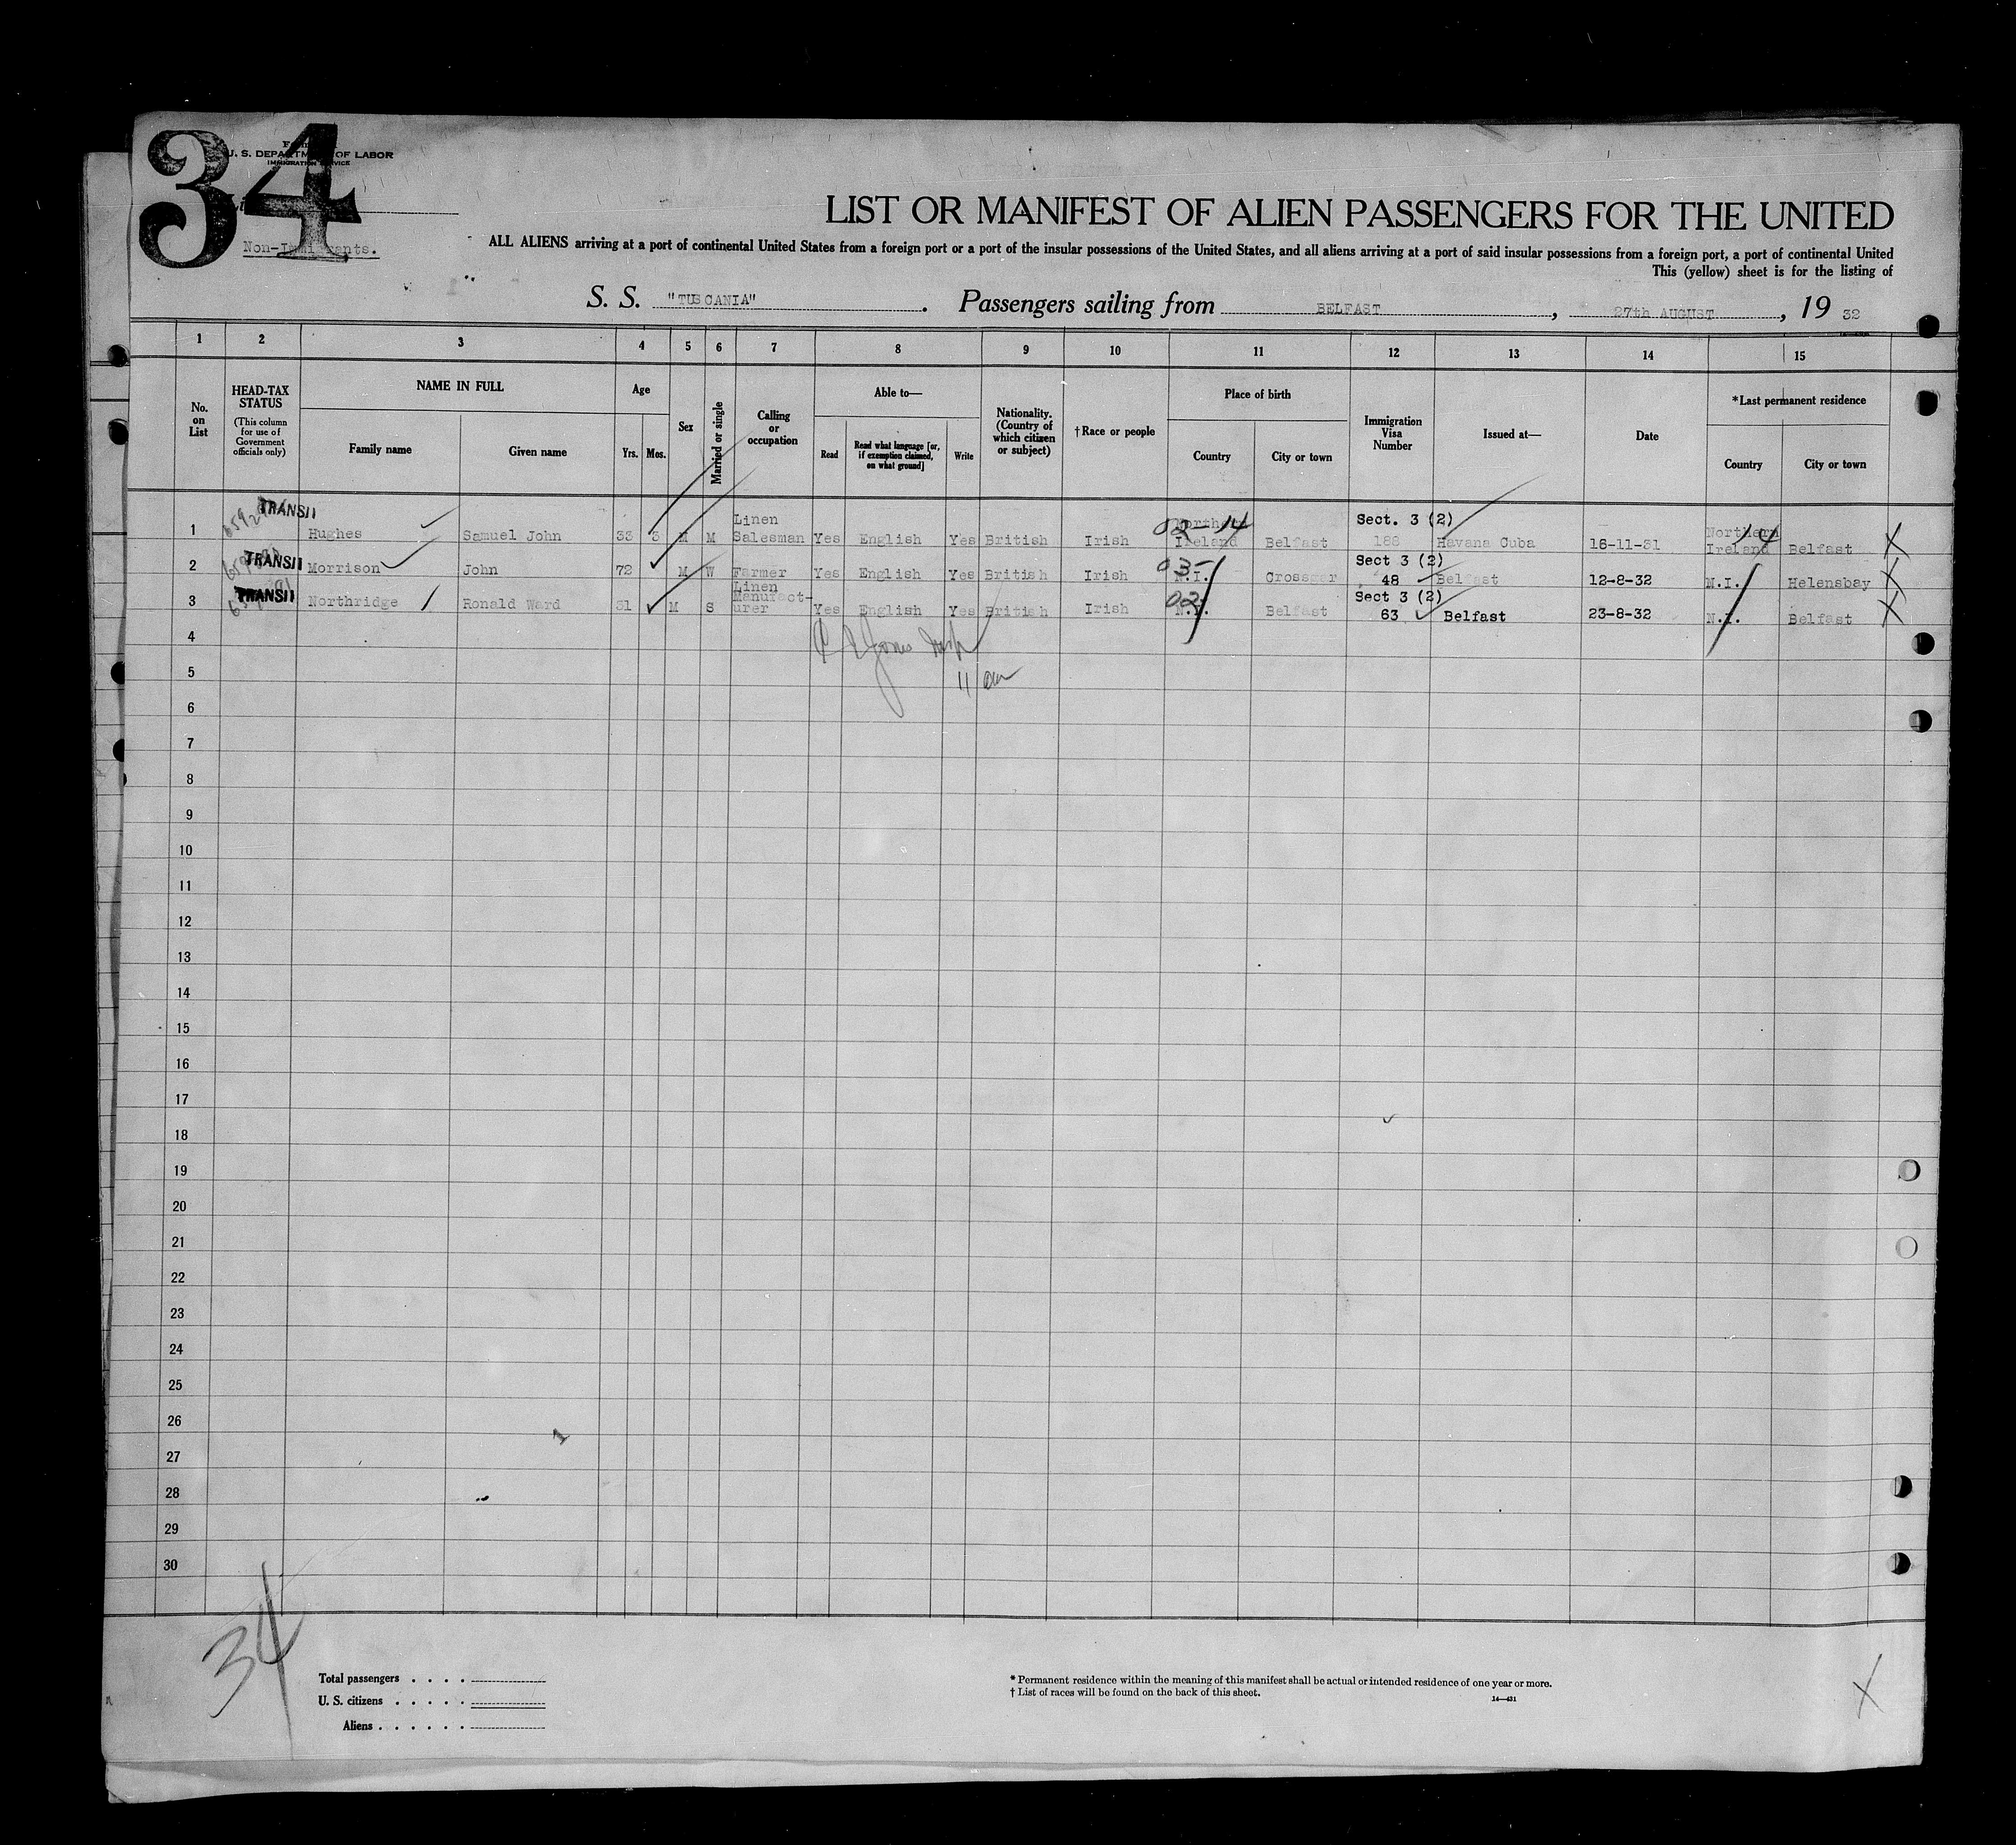 34
U. S. DEPARTMENT OF LABOR
IMMIGRATION SERVICE
Non-Immigrants.
LIST OR MANIFEST OF ALIEN PASSENGERS FOR THE UNITED
ALL ALIENS arriving at a port of continental United States from a foreign port or a port of the insular possessions of the United States, and all aliens arriving at a port of said insular possessions from a foreign port, a port of continental United
This (yellow) sheet is for the listing of
S. S. "TUSCANIA". Passengers sailing from BELFAST, 27th AUGUST, 19 32
1 2 3 4 5 6 7 8 9 10 11 12 13 14 15
No. on List
HEAD-TAX STATUS
(This column for use of Government officials only)
NAME IN FULL
Family name Given name
Age
Yrs. Mos.
Sex
Married or single
Calling or occupation
Able to—
Read
Read what language [or, if exemption claimed, on what ground]
Write
Nationality. (Country of which citizen or subject)
† Race or people
Place of birth
Country City or town
Immigration Visa Number
Issued at—
Date
*Last permanent residence
Country City or town
1 TRANSIT Hughes Samuel John 33 3 M M Linen Salesman Yes English Yes British Irish Northern Ireland 02-14 Belfast Sect. 3 (2) 188 Havana Cuba 16-11-31 Northern Ireland 14 Belfast X
2 TRANSIT Morrison John 72 M W Farmer Yes English Yes British Irish 03- N.I. Crossgar Sect 3 (2) 48 Belfast 12-8-32 N.I. Helensbay X
3 TRANSIT Northridge Ronald Ward 31 M S Linen Manufact-urer Yes English Yes British Irish 02 N.I. Belfast Sect 3 (2) 63 Belfast 23-8-32 N.I. Belfast X
4
Jones Insp
5
11 am
6
7
8
9
10
11
12
13
14
15
16
17
18
19
20
21
22
23
24
25
26
27
28
29
30
34
Total passengers . . . .
U. S. citizens . . . . .
Aliens . . . . . .
* Permanent residence within the meaning of this manifest shall be actual or intended residence of one year or more.
† List of races will be found on the back of this sheet.
14—431
X